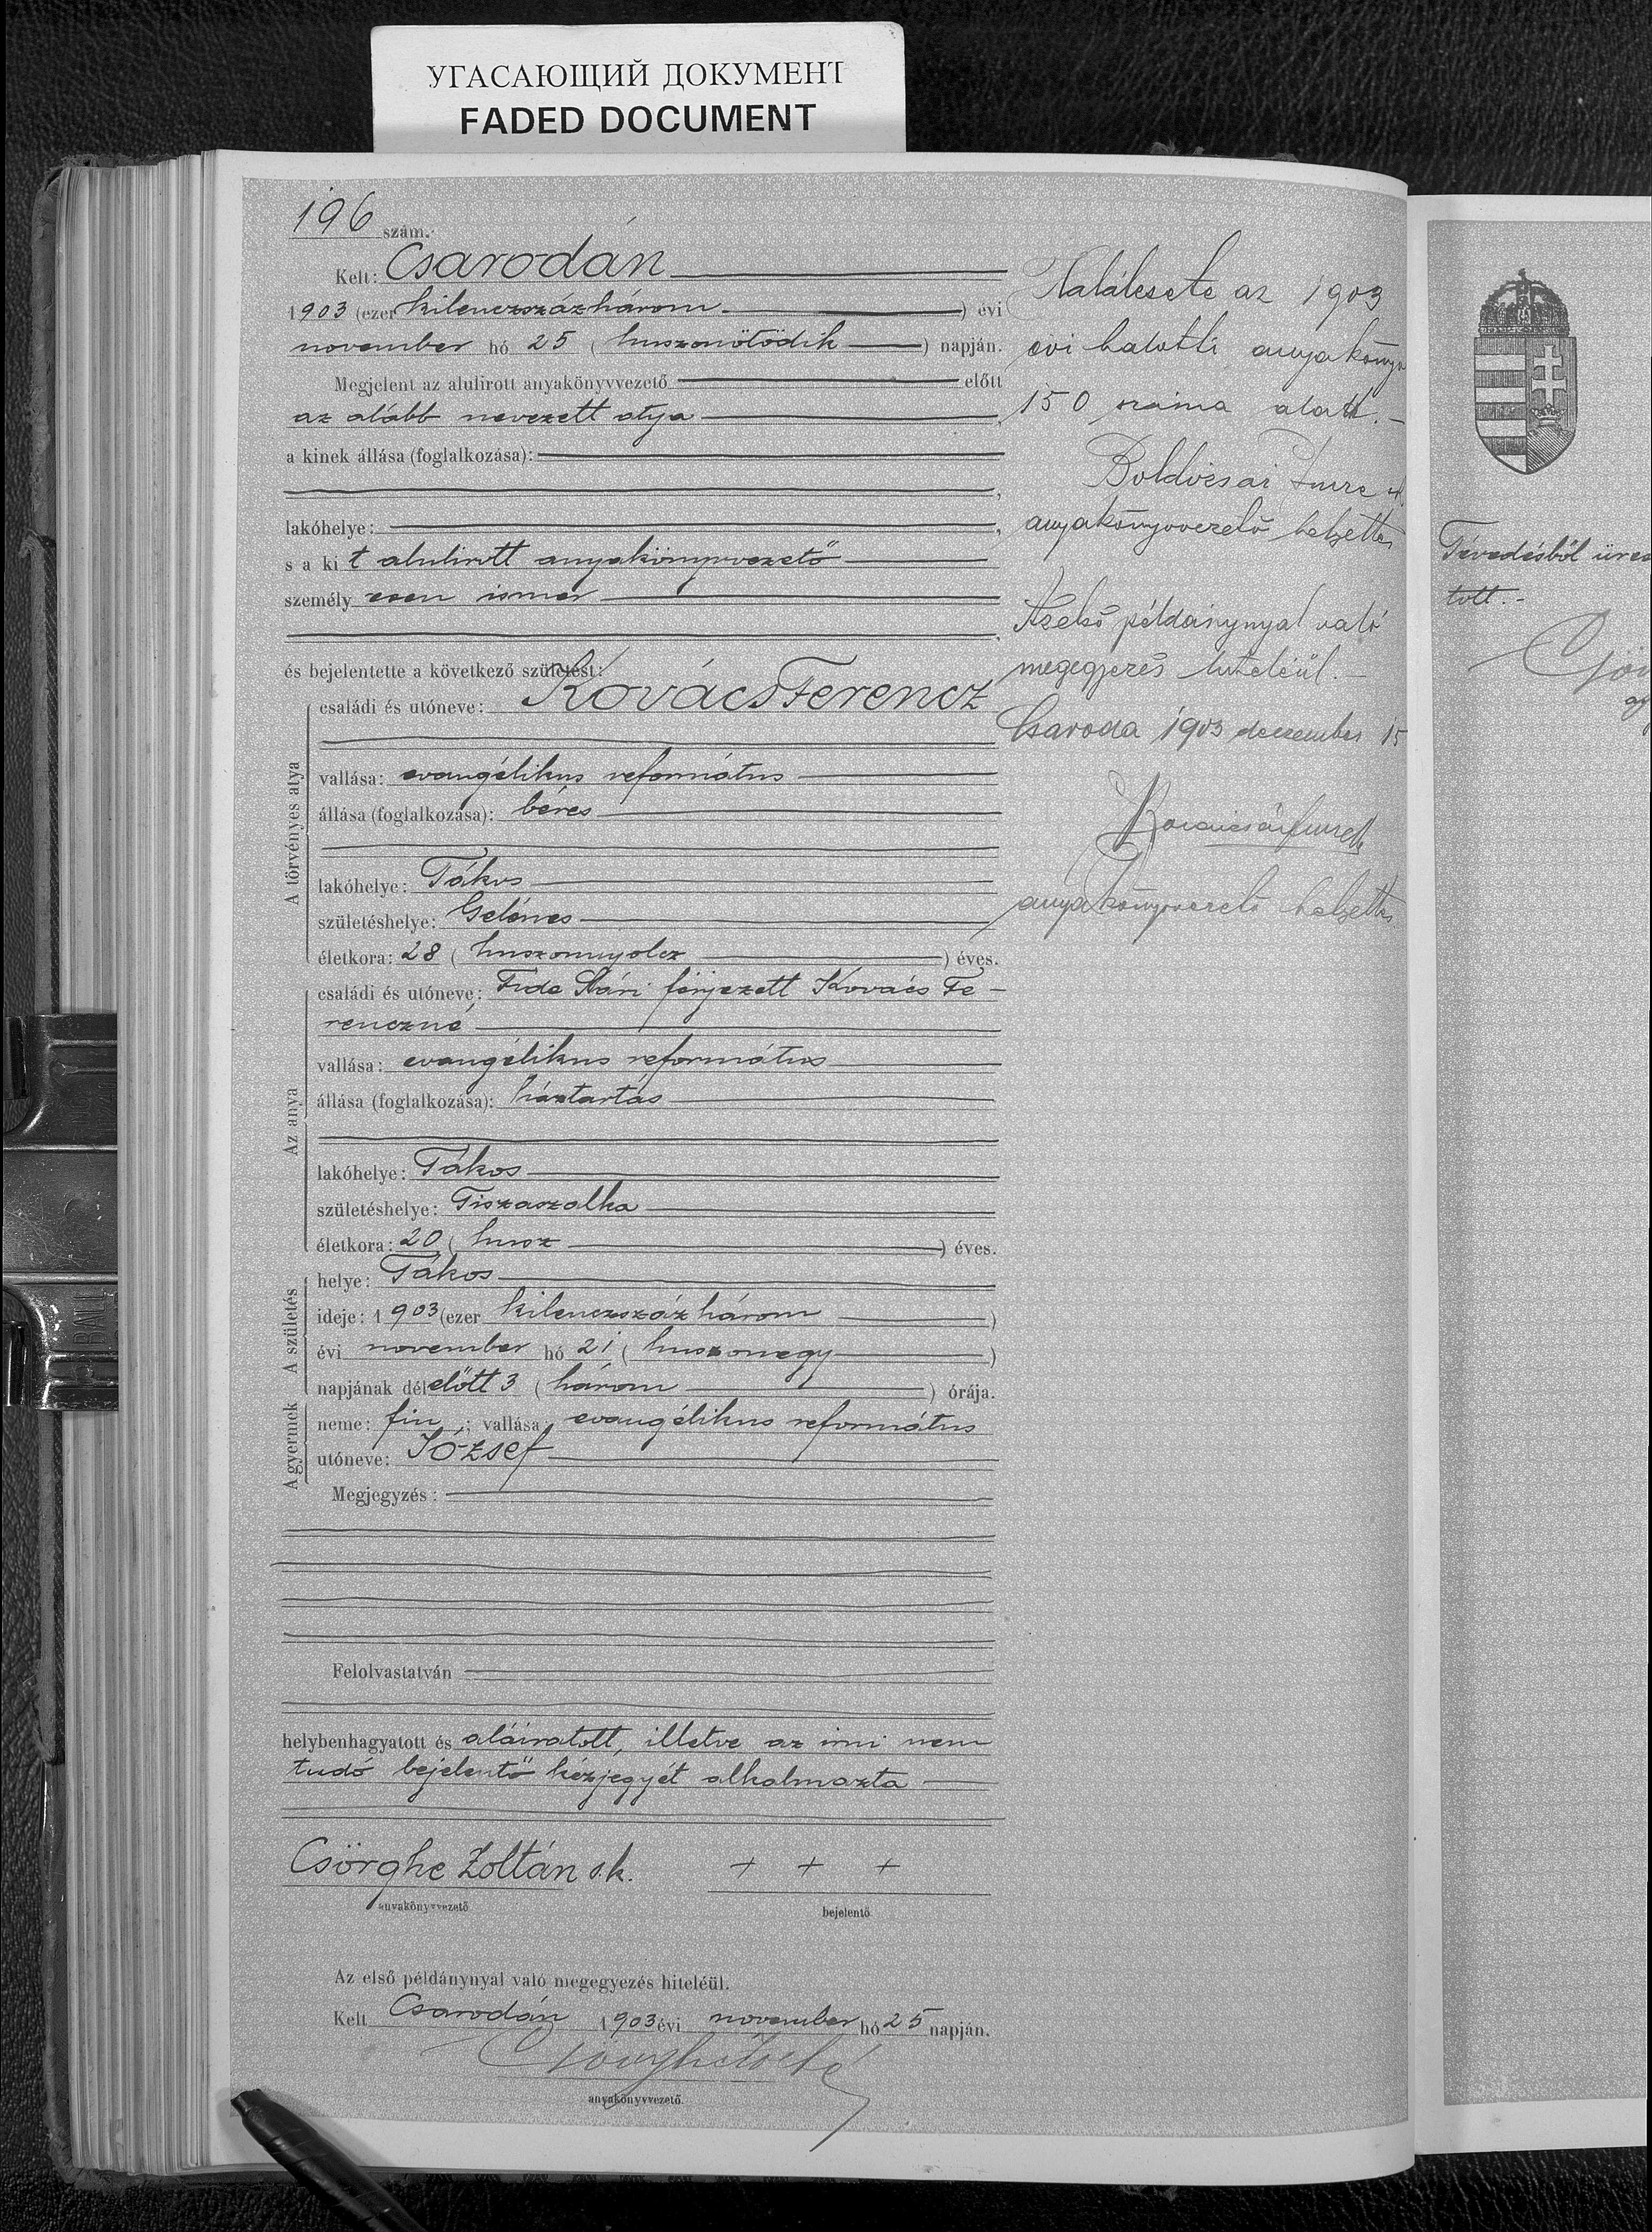 УГАСАЮЩИЙ ДОКУМЕНТ
FADED DOCUMENT
196 szám.
Kelt: Csarodán
1903 (ezer kilenczszázhárom) évi
november hó 25 (huszonötödik) napján.
Megjelent az alulirott anyakönyvvezető előtt
az alább nevezett atya,
a kinek állása (foglalkozása):
,
lakóhelye: ,
s a kit alulirott anyakönyvvezető
személyesen ismer
,
és bejelentette a következő születést:
A törvényes atya
családi és utóneve: Kovács Ferencz
vallása: evangélikus református
állása (foglalkozása): béres
lakóhelye: Tákos
születéshelye: Gelénes
életkora: 28 (huszonnyolcz) éves.
Az anya
családi és utóneve: Sári férjezett Kovács Fe-
renczné
vallása: evangélikus református
állása (foglalkozása): háztartás
lakóhelye: Tákos
születéshelye: Tiszaszalka
életkora: 20 (husz) éves.
A születés
helye: Tákos
ideje: 1903 (ezer kilenczszázhárom)
évi november hó 21 (huszonegy)
napjának délelőtt 3 (három) órája.
A gyermek
neme: fiu; vallása: evangélikus református
utóneve: József
Megjegyzés:
Felolvastatván
helybenhagyatott és aláiratott, illetve az irni nem
tudó bejelentő kézjegyét alkalmazta
Csörghe Zoltán s.k. + + +
anyakönyvvezető bejelentő
Az első példánynyal való megegyezés hiteléül.
Kelt Csarodán 1903 évi november hó 25 napján.
anyakönyvvezető.
Halálesete az 1903
évi halotti anyakönyv
150 száma alatt.-
Imre
anyakönyvvezető helyettes
Az első példánynyal való
megegyezés hiteléül.-
Csaroda 1903 deczember 15
anyakönyvvezető helyettes
Tévedésből üres
tott.-